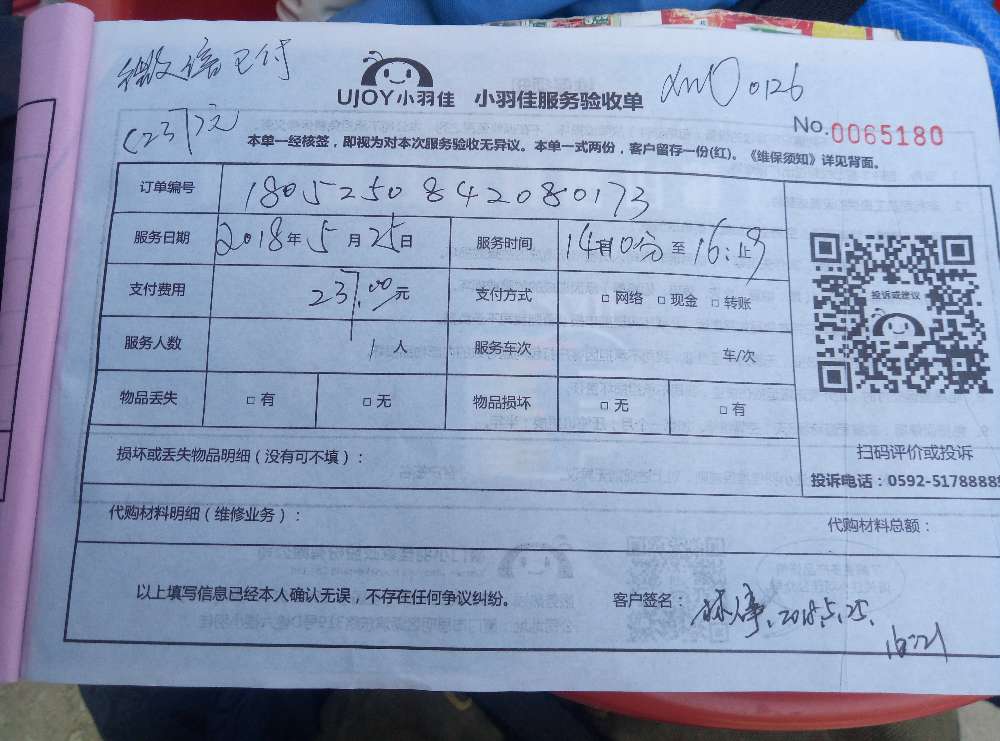 微信已付
(237元)
UJOY小羽佳 小羽佳服务验收单
XMD0126
No.0065180
本单一经核签，即视为对本次服务验收无异议。本单一式两份，客户留存一份(红)。《维保须知》详见背面。
订单编号 1805250842080173
服务日期 2018年5月25日 服务时间 14时10分至16:19止
支付费用 237.00元 支付方式 □网络 □现金 □转账
服务人数 1人 服务车次 车/次
物品丢失 □有 □无 物品损坏 □无 □有
投诉或建议
扫码评价或投诉
投诉电话：0592-5178888
损坏或丢失物品明细（没有可不填）：
代购材料明细（维修业务）： 代购材料总额：
以上填写信息已经本人确认无误，不存在任何争议纠纷。 客户签名： 2018.5.25.
16:21